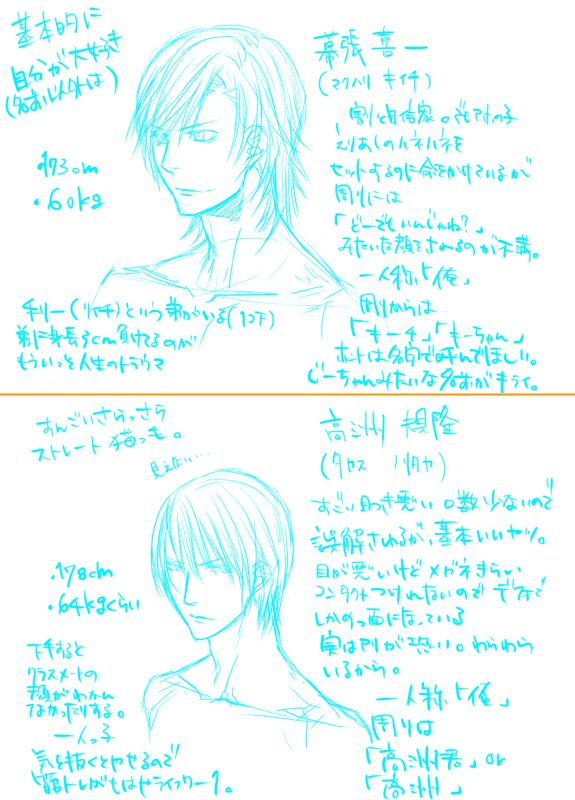 基本的に
自分が大好き
(名前以外は)
・173cm
・60kg
幕張 喜一
(マクハリ キイチ)
割と自信家。でもアホの子
えりあしのハネハネを
セットするのに命をかけているが
周りには
「どーでもいんじゃね?」
みたいな顔をされるのが不満。
一人称「俺」
周りからは
「きーち」「きーちゃん」
ホントは名字で呼んでほしい。
じーちゃんみたいな名前がキライ。
利一(リイチ)という弟がいる(1コ下)
弟に身長5cm負けてるのが
もういっそ人生のトラウマ
すんごいさらっさら
ストレート 猫っ毛。
見えたい…
・178cm
・64kgくらい
高洲 規隆
(タカス ノリタカ)
すごい目つき悪い 口数少ないので
誤解されるが、基本いいヤツ。
目が悪いけどメガネきらい
コンタクトつけれないので デフォで
しかめっ面になっている
実は が恐い。わらわら
いるから。
一人称「俺」
周りは
「高洲君」or
「高洲」
下手すると
クラスメートの
顔がわかんなかったりする。
一人っ子
気を抜くとやせるので
筋トレがもはやライフワーク。